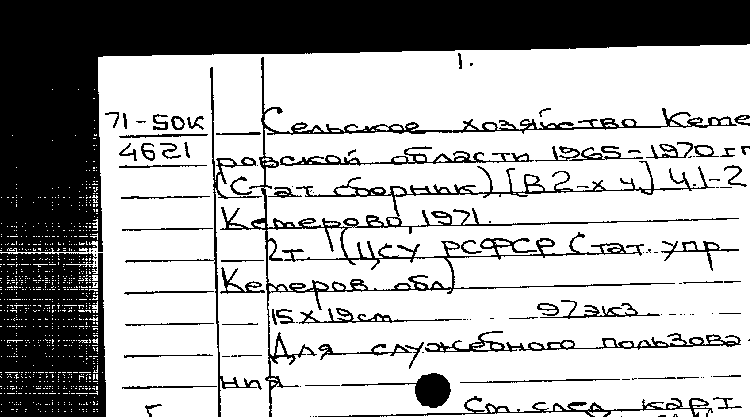 1.
71-50к Сельское хозяйство Кеме
4621 ровской области 1965-1970 гг
(Стат. сборник) [В 2-х ч.] Ч.1-2
Кемерово, 1971.
2т. (ЦСУ РСФСР. Стат. упр.
Кемеров. обл)
15 х 19 см 97 экз.
Для служебного пользова-
ния
См. след. карт